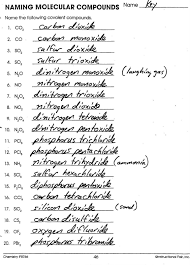 NAMING MOLECULAR COMPOUNDS Name Key
Name the following covalent compounds.
1. CO₂ carbon dioxide
2. CO carbon monoxide
3. SO₂ sulfur dioxide
4. SO₃ sulfur trioxide
5. N₂O dinitrogen monoxide (laughing gas)
6. NO nitrogen monoxide
7. N₂O₃ dinitrogen trioxide
8. NO₂ nitrogen dioxide
9. N₂O₄ dinitrogen tetroxide
10. N₂O₅ dinitrogen pentoxide
11. PCl₃ phosphorus trichloride
12. PCl₅ phosphorus pentachloride
13. NH₃ nitrogen trihydride (ammonia)
14. sulfur hexachloride
15. P₂O₅ diphosphorus pentoxide
16. CCl₄ carbon tetrachloride
17. SiO₂ silicon dioxide (sand)
18. CS₂ carbon disulfide
19. OF₂ oxygen difluoride
20. PBr₃ phosphorus tribromide
Chemistry IF8766